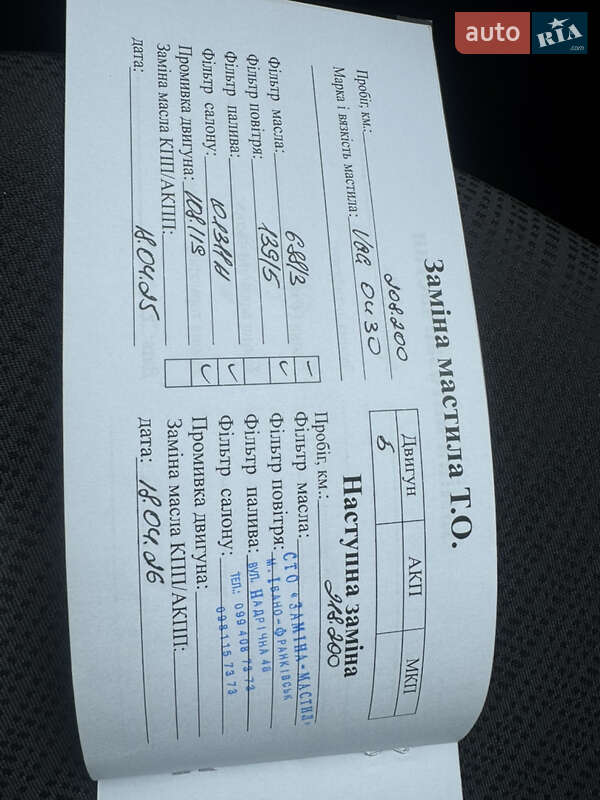 auto RIA.com
Заміна мастила Т.О.
Пробіг, км.: 208.200
Марка і вязкість мастила: Vag 0W30
Фільтр масла: 688/3
Фільтр повітря: 139/5
Фільтр палива:
Фільтр салону:
Промивка двигуна:
Заміна масла КПП/АКПП:
дата: 18.04.25
Двигун АКП МКП
5
Наступна заміна
Пробіг, км.: 218.200
Фільтр масла:
Фільтр повітря:
Фільтр палива:
Фільтр салону:
Промивка двигуна:
Заміна масла КПП/АКПП:
дата: 18.04.26
СТО «ЗАМІНА-МАСТИЛ»
м. Івано-Франківськ
вул. Надрічна 4б
тел.: 099 408 73 73
098 115 73 73